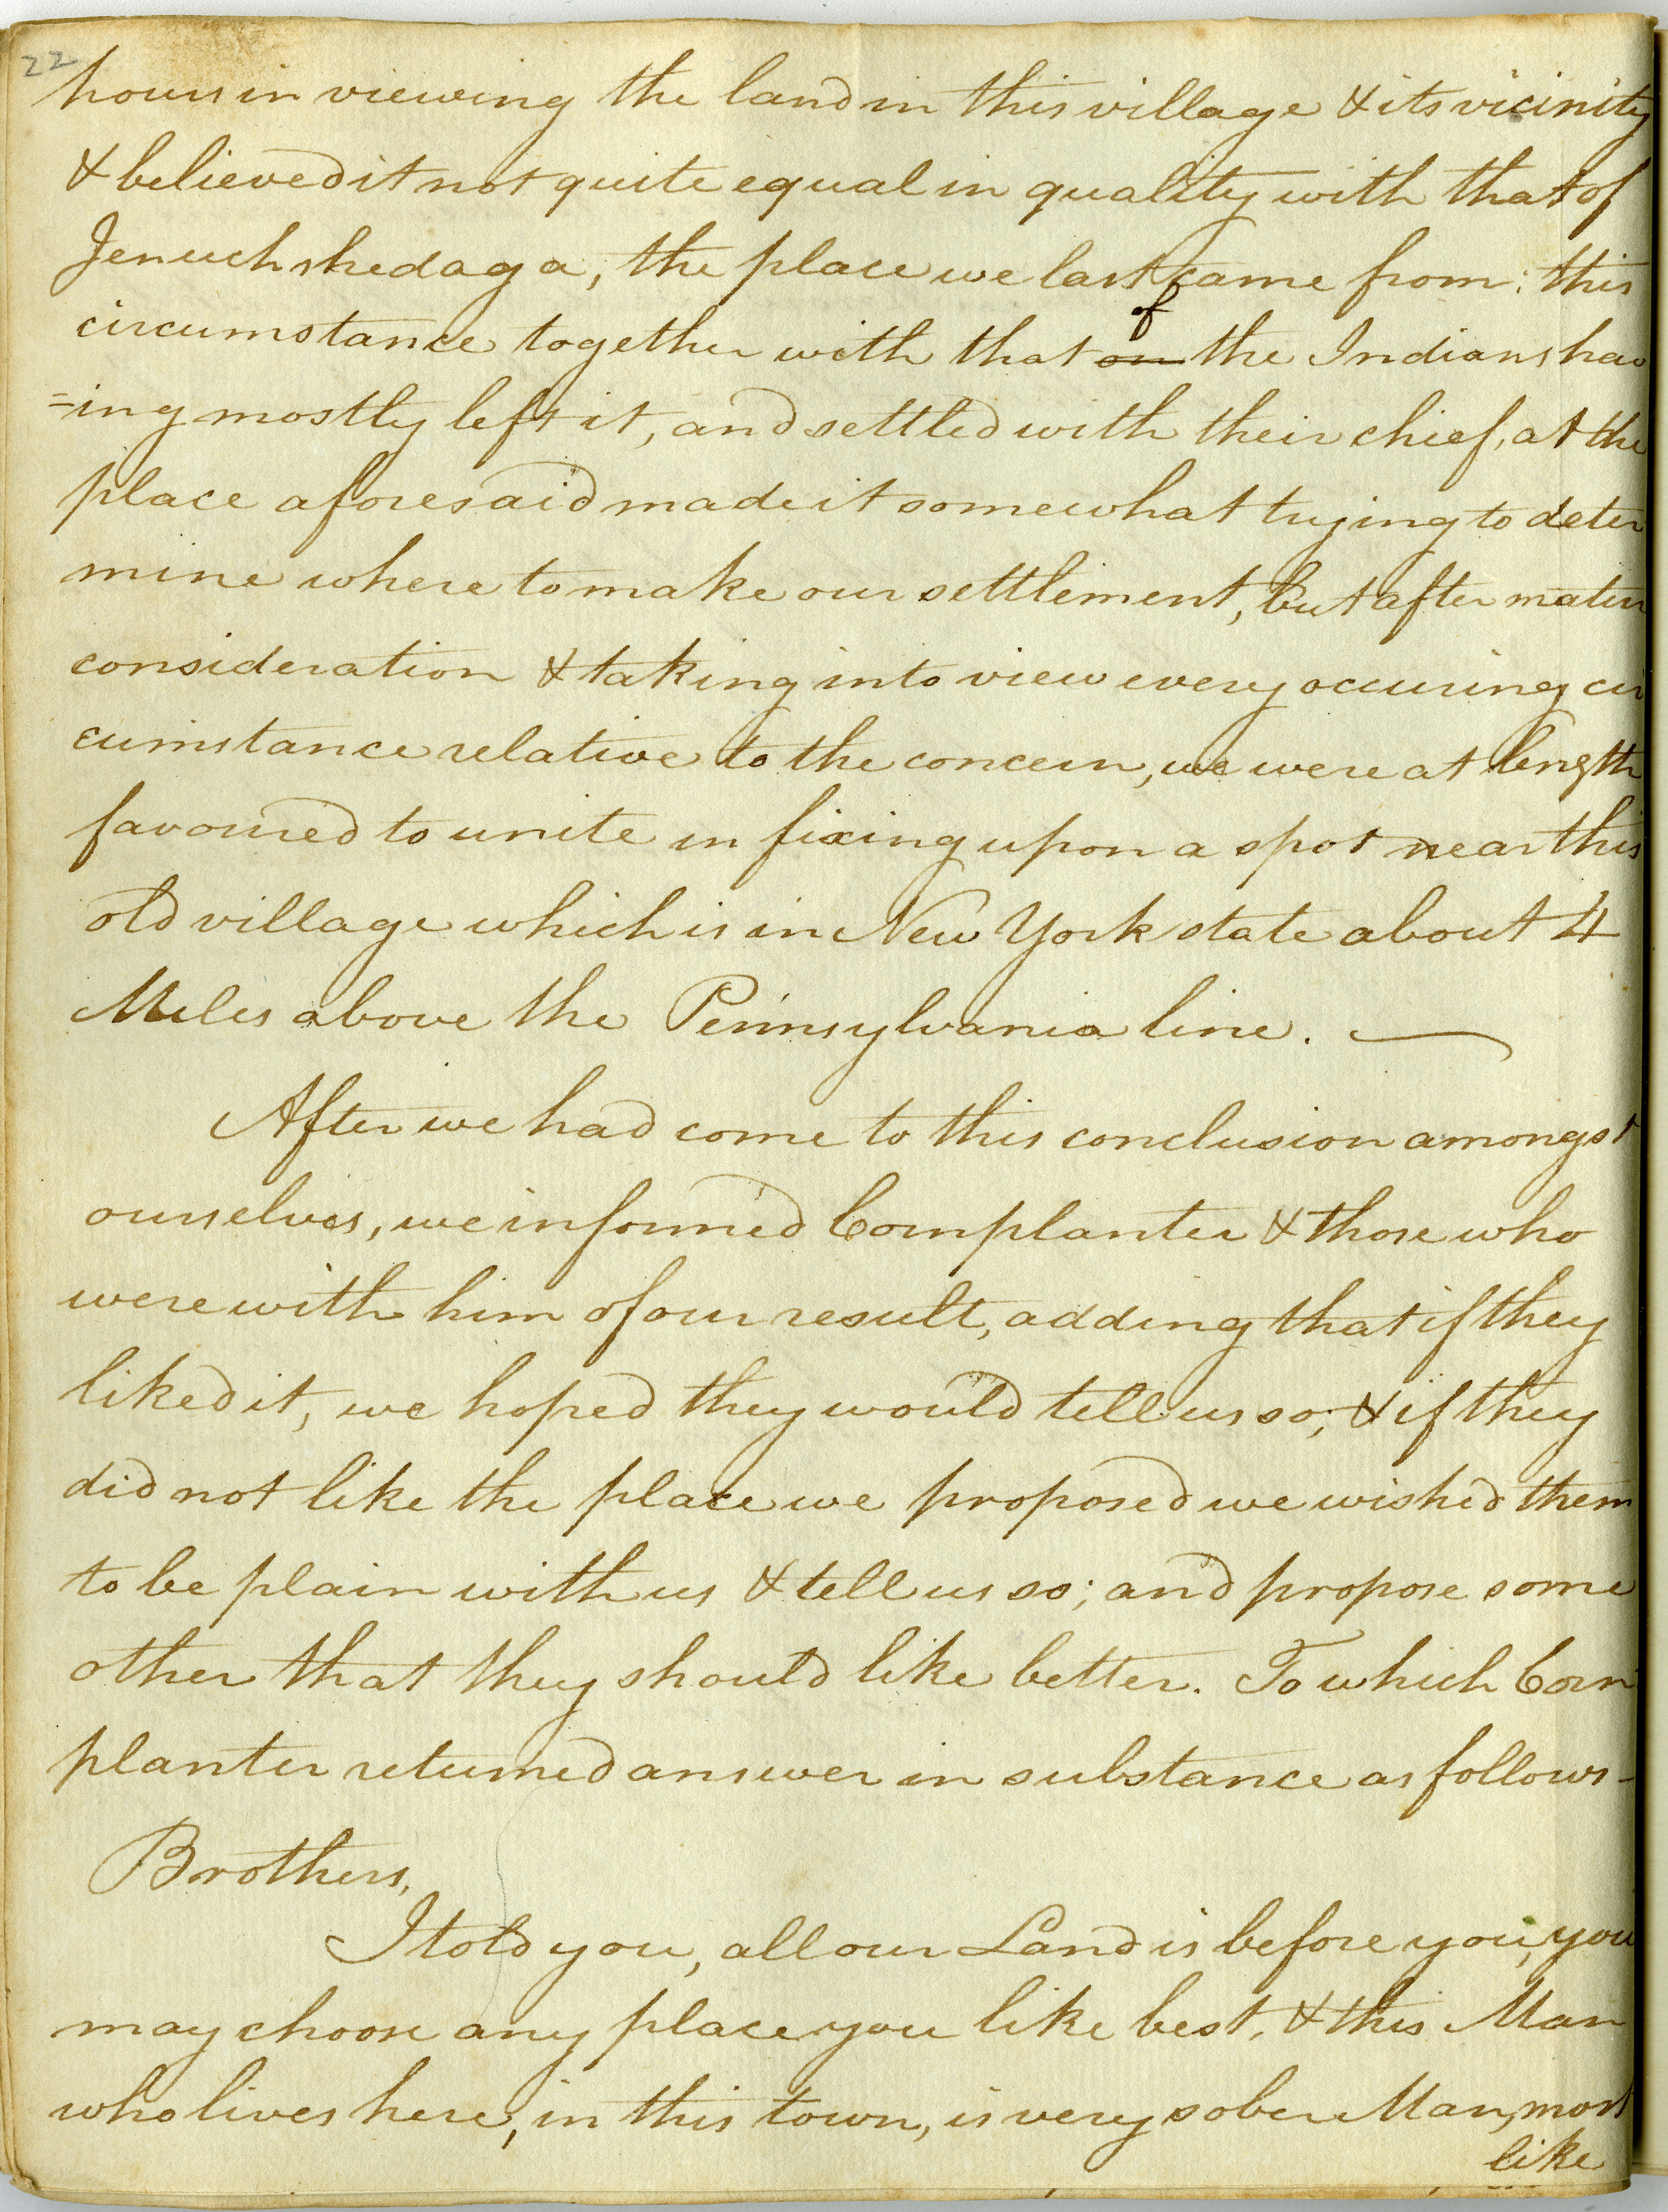 22
hours in viewing the land in this village & its vicinity
& believed it not quite equal in quality with that of
Jenuchshedaga, the place we last came from: this
of
circumstance together with that on the Indians hav
=ing mostly left it, and settled with their chief, at the
place aforesaid made it somewhat trying to deter
mine where to make our settlement, but after mature
consideration & taking into view every occuring cir
cumstance relative to the concern, we were at length
favoured to unite in fixing upon a spot near this
old village which is in New York state about 4
Miles above the Pennsylvania line.
After we had come to this conclusion amongst
ourselves, we informed Cornplanter & those who
were with him of our result, adding that if they
liked it, we hoped they would tell us so; & if they
did not like the place we proposed we wished them
to be plain with us & tell us so; and propose some
other that they should like better. To which Corn
planter returned answer in substance as follows-
Brothers,
I told you, all our Land is before you, you
may choose any place you like best, & this Man
who lives here, in this town, is very sober Man, most
like